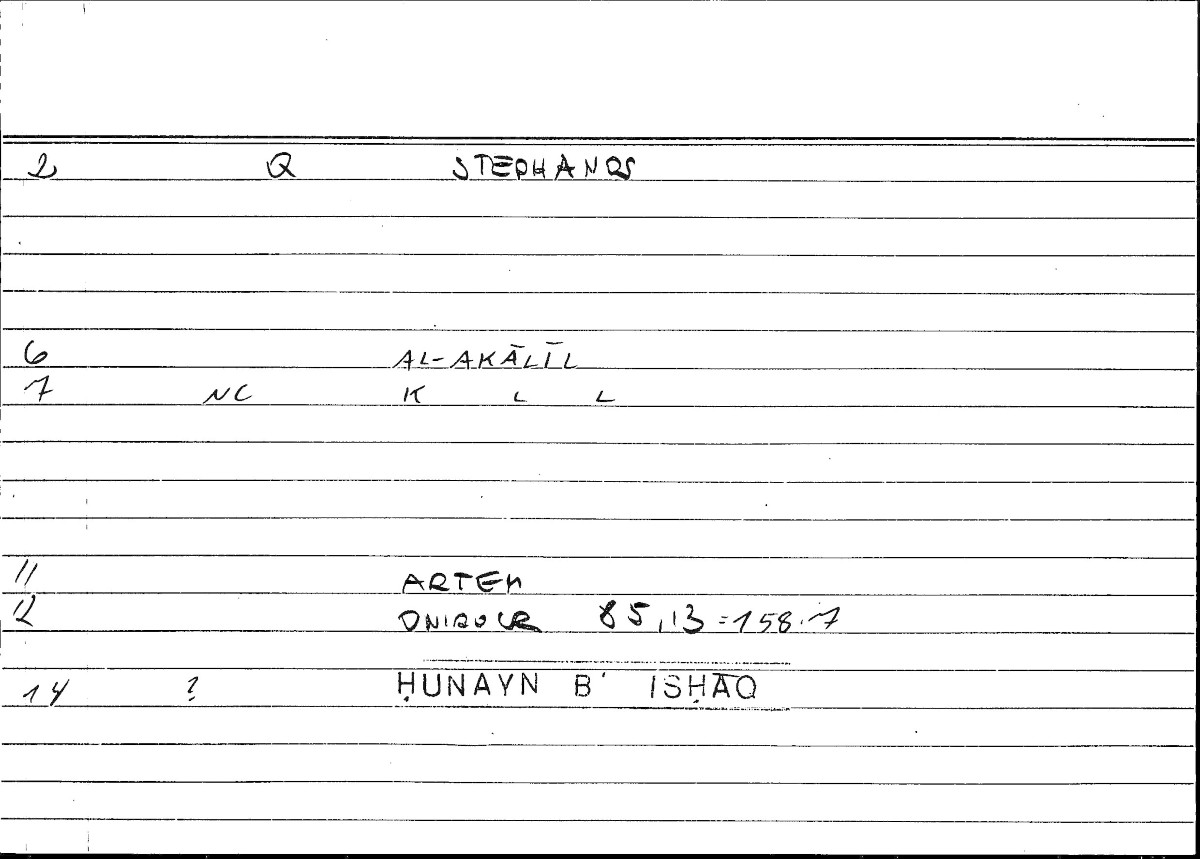 2 Q STEPHANOS
6 AL-AKĀLĪL
7 NC K L L
11 ARTEM
12 ONIROCR 85,13=158.7
14 ? ḤUNAYN B' ISḤĀQ